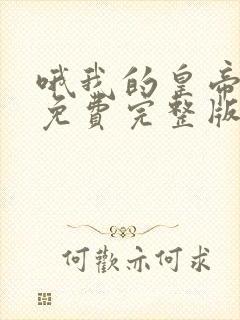 哦我的皇帝
免費完整版
何歡亦何求